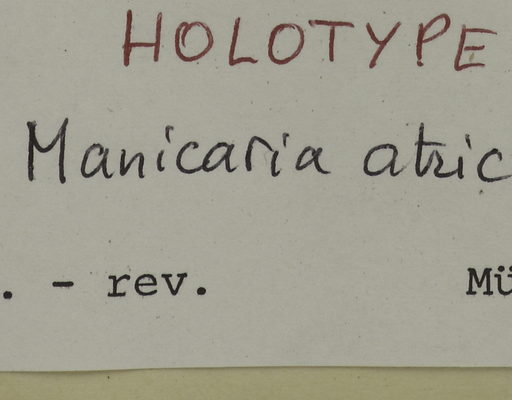 HOLOTYPE
Manicaria atric
. - rev. Mü